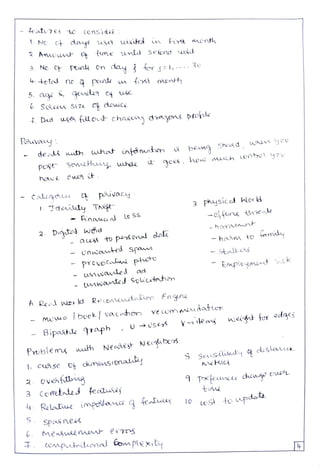 - features to consider
1. No of days user visited in first month
2 Amount of time until second visit
3. No of points on day j for j=1,... 30
4 total no of points in first month
5. age & gender of user
6. Screen size of device
7. Did user fill out chasing dragons profile
Privacy:
- deals with what information is being shared, when you
post something where it goes, how much control you
have over it.
- Categories of privacy
1. Identity Theft
- Financial loss
2. Digital World
- access to personal data
- unwanted spams
- provocative photo
- unwanted ad
- unwanted solicitation
3 physical World
- offline threats
- harassment
- harm to family
- Stalkers
- Employment risk
A Real world Recommendation Engine
- movie / book / vacation recommendation
- Bipartite graph, U → users V → items weight for edges
Problems with Nearest Neighbors
1. curse of dimensionality
2 overfitting
3 correlated features
4. Relative importance of features
5. sparseness
6. Measurement errors
7. computational complexity
8. Sensitivity of distance
metrics
9. Preferences change over
time
10 cost to update